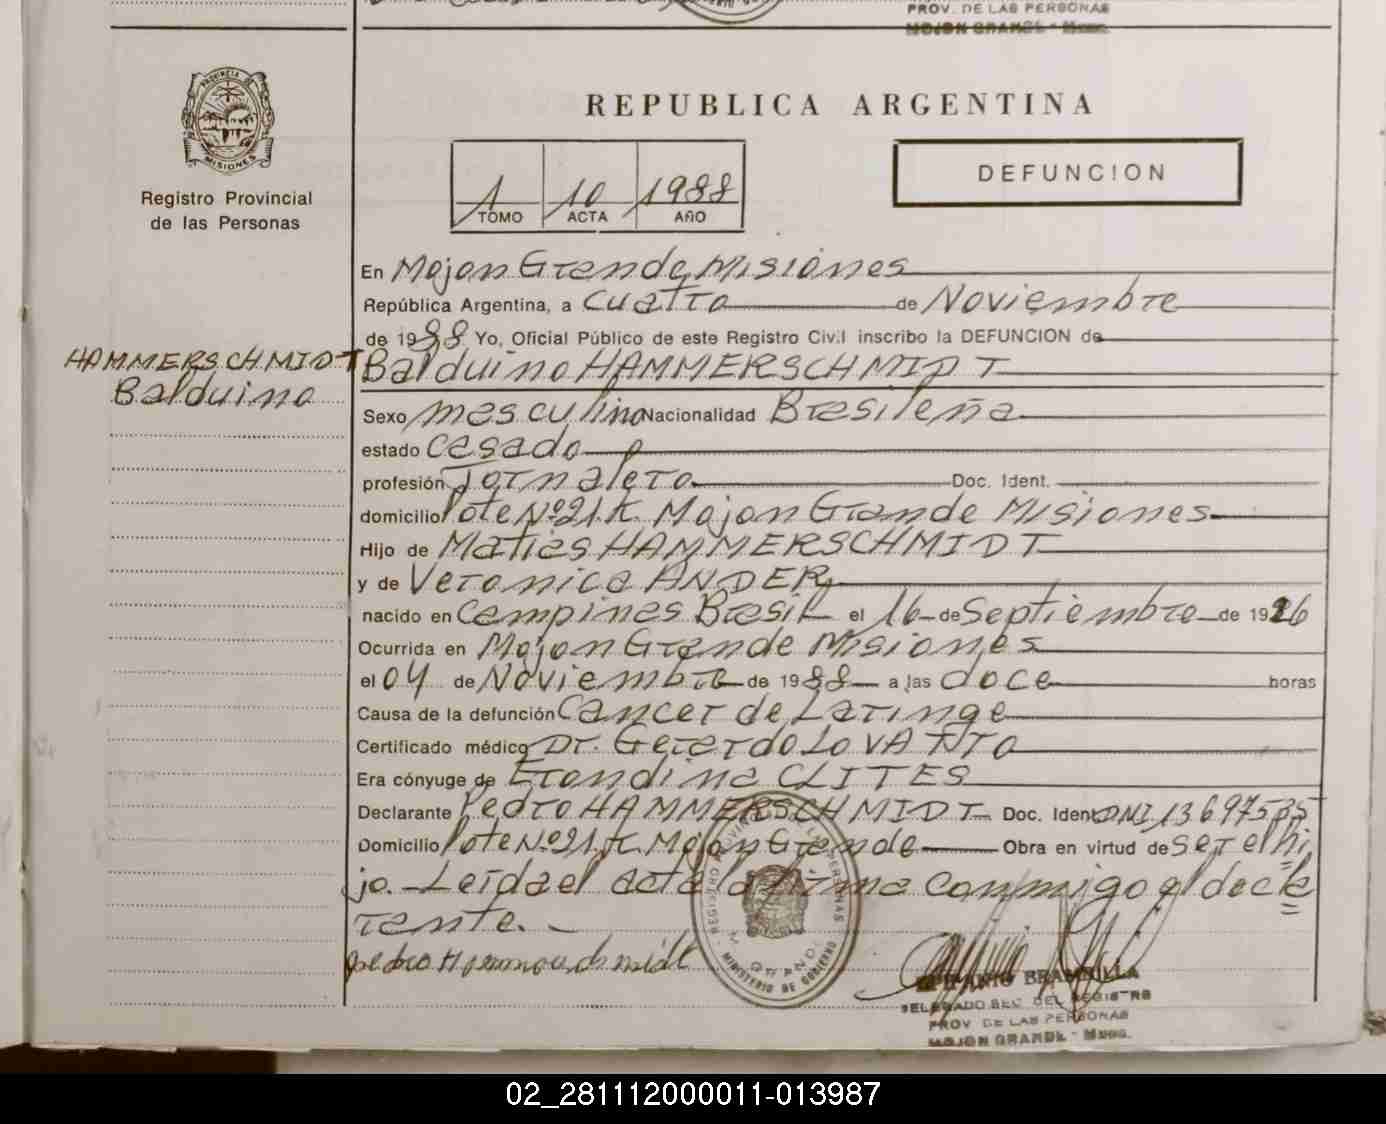 PROV. DE LAS PERSONAS
MOJON GRANDE - Mnes.
PROVINCIA DE
MISIONES
Registro Provincial
de las Personas
REPUBLICA ARGENTINA
1 10 1988
TOMO ACTA AÑO
DEFUNCION
En Mojon Grande, Misiones
República Argentina, a cuatro de Noviembre
de 1988 Yo, Oficial Público de este Registro Civil inscribo la DEFUNCION de
HAMMERSCHMIDT
Balduino
Balduino HAMMERSCHMIDT
Sexo masculino Nacionalidad Brasileña
estado casado
profesión Jornalero Doc. Ident.
domicilio lote Nº 21. Mojon Grande Misiones
Hijo de Matias HAMMERSCHMIDT
y de Veronica ANDER
nacido en Campinas Brasil el 16 de Septiembre de 1926
Ocurrida en Mojon Grande Misiones
el 04 de Noviembre de 1988 a las doce horas
Causa de la defunción Cancer de Laringe
Certificado médico Dr. Gerardo LOVATTO
Era cónyuge de Erondina CLITES
Declarante Pedro HAMMERSCHMIDT Doc. Ident DNI 13697535
Domicilio lote Nº 21. Mojon Grande Obra en virtud de ser el hi
jo. Leida el acta la firma conmigo el decla
rante.
pedro Hammerschmidt
REGISTRO PROVINCIAL DE LAS PERSONAS
M. GRANDE
MINISTERIO DE GOBIERNO
EPIFANIO BRAMBILLA
DELEGADO SEC. DEL REGISTRO
PROV DE LAS PERSONAS
MOJON GRANDE - Mnes.
02_281112000011-013987